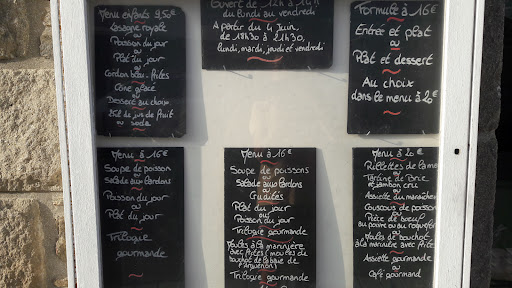 Menu enfants 9,50€
Lasagne royale
ou
Poisson du jour
ou
Plat du jour
ou
Cordon bleu - frites
Cône glacé
ou
Dessert au choix
25cl de jus de fruit
ou soda
Ouvert de 12h à 14h
du lundi au vendredi
A partir du 4 Juin,
de 18h30 à 21h30,
lundi, mardi, jeudi et vendredi
Formule à 16€
Entrée et plat
ou
Plat et dessert
Au choix
dans le menu à 20€
Menu à 16€
Soupe de poisson
ou
Salade aux lardons
Poisson du jour
ou
Plat du jour
Trilogie
gourmande
Menu à 16€
Soupe de poissons
ou
Salade aux lardons
ou
Crudités
Plat du jour
ou
Poisson du jour
Trilogie gourmande
Moules à la marinière
avec frites, moules de
bouchot de la baie de
Trilogie gourmande
ou
gourmand
Menu à 20€
Rillettes de la mer
ou
Tartine de Brie
et jambon cru
ou
Assiette du maraîcher
Couscous de poisson
ou
Pièce de boeuf
au poivre ou au roquefort
ou
Moules de bouchot
à la marinière avec frites
Assiette gourmande
ou
Café gourmand